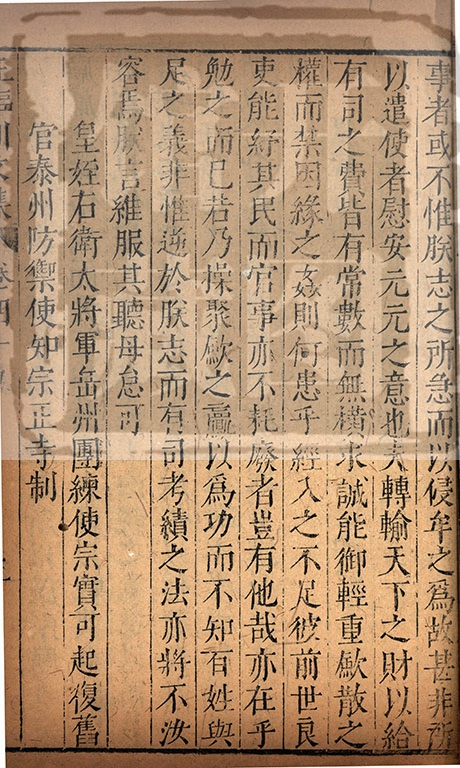 事者或不惟朕志之所急而以侵牟之爲故甚非所
以遣使者慰安元元之意也夫轉輸天下之財以給
有司之費皆有常數而無橫求誠能御輕重斂散之
權而禁因緣之姦則何患乎經入之不足彼前世良
吏能紓其民而官事亦不耗廢者豈有他哉亦在乎
勉之而已若乃操聚斂之贏以爲功而不知百姓與
足之義非惟逆於朕志而有司考績之法亦將不汝
容焉朕言維服其聽毋怠可
皇姪右衛大將軍岳州團練使宗實可起復舊
官泰州防禦使知宗正寺制
王臨川文集 卷四十